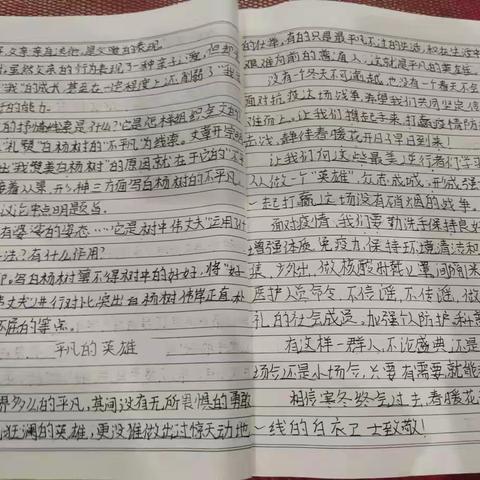 文章亲身送他,是父爱的表现。
虽然父亲的行为表现了一种亲子之爱,但却
"我"的成长,甚至在一定程度上还削弱了"我
的能力。
的抒情线索是什么?它是怎样组织全文的
"礼赞"白杨树的"不平凡"为线索。文章开
出"我赞美白杨树"的原因就在于它的"不平
着从景、形、神三方面写白杨树的不平凡。
议论中点明题旨。
有婆娑的姿态……它是树中伟大夫"运用了什
法?有什么作用?
写白杨树算不得树中的好女子,将"好
丈夫进行对比,突出白杨树伟岸正直、朴
不屈的军点。
平凡的英雄
界多么的平凡,其间没有无所畏惧的勇敢
狂澜的英雄,更没谁做出过惊天动地
的仕举,有的只是最平凡不过的生活,和在生活中
艰难前的普通人,这就是平凡的英雄。
没有一个冬天不可逾越,也没有一个春天不会
面对抗疫这场战争,希望我们共同坚定信
难而上,让我们携起手来,打赢疫情防
击战,静待春暖花开日子早日到来!
让我们向这些最美逆行者们学习
人人做一个"英雄",众志成城,形成强
一起打赢这场没有硝烟的战争。
面对疫情,我们要勤洗手保持良好
增强体质、免疫力,保持环境清洁和
外出,做核酸时戴口罩,间隔一米
医护人员命令,不信谣,不传谣,做
礼的社会成员。加强个人防护,科
有这样一群人,不论盛典还是
场合还是小场合,只要有需要,就能
相信寒冬终会过去,春暖花
一线的白衣卫士致敬!